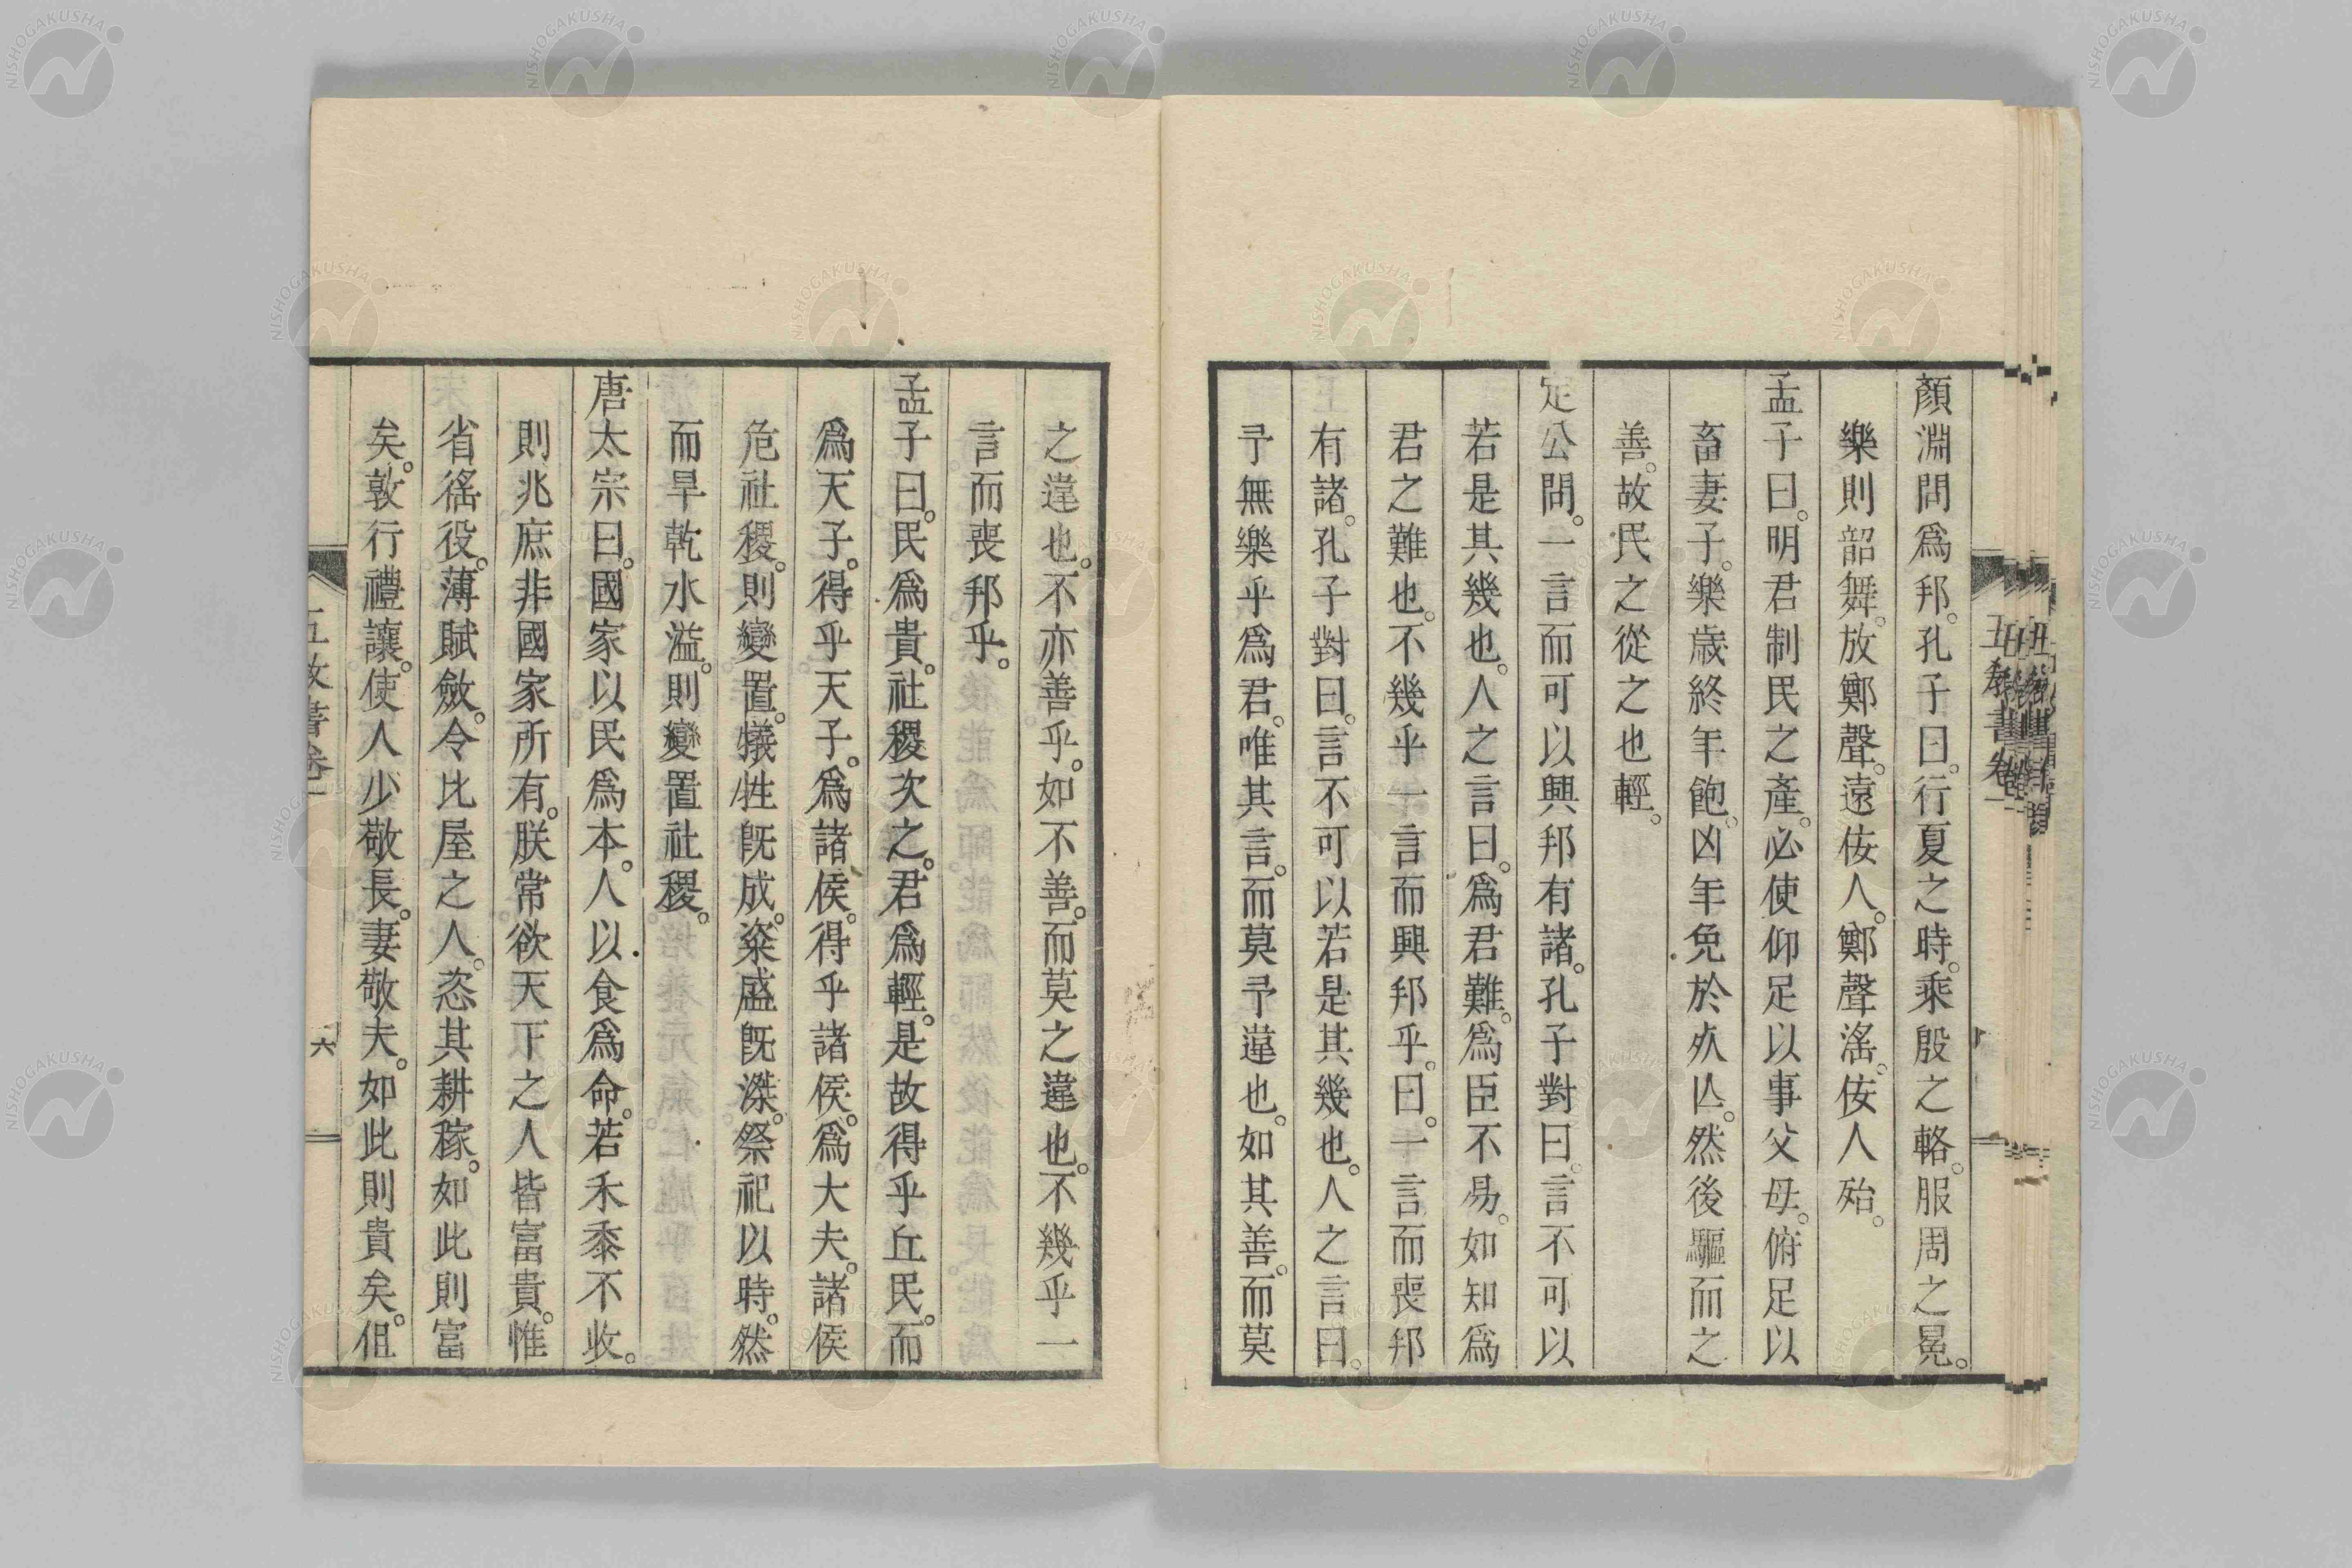 顏淵問爲邦。孔子曰。行夏之時。乘殷之輅。服周之冕。
樂則韶舞。放鄭聲。遠佞人。鄭聲淫。佞人殆。
孟子曰。明君制民之產。必使仰足以事父母。俯足以
畜妻子。樂歲終年飽。凶年免於死亾。然後驅而之
善。故民之從之也輕。
定公問。一言而可以興邦有諸。孔子對曰。言不可以
若是其幾也。人之言曰。爲君難。爲臣不易。如知爲
君之難也。不幾乎一言而興邦乎。曰。一言而喪邦
有諸。孔子對曰。言不可以若是其幾也。人之言曰。
予無樂乎爲君。唯其言。而莫予違也。如其善。而莫
之違也。不亦善乎。如不善。而莫之違也。不幾乎一
言而喪邦乎。
孟子曰。民爲貴。社稷次之。君爲輕。是故得乎丘民。而
爲天子。得乎天子。爲諸侯。得乎諸侯。爲大夫。諸侯
危社稷。則變置。犧牲旣成。粢盛旣潔。祭祀以時。然
而旱乾水溢。則變置社稷。
唐太宗曰。國家以民爲本。人以食爲命。若禾黍不收。
則兆庶非國家所有。朕常欲天下之人皆富貴。惟
省徭役。薄賦斂。令比屋之人。恣其耕稼。如此則富
矣。敦行禮讓。使人少敬長。妻敬夫。如此則貴矣。但
五教書卷一
六
NISHOGAKUSHA